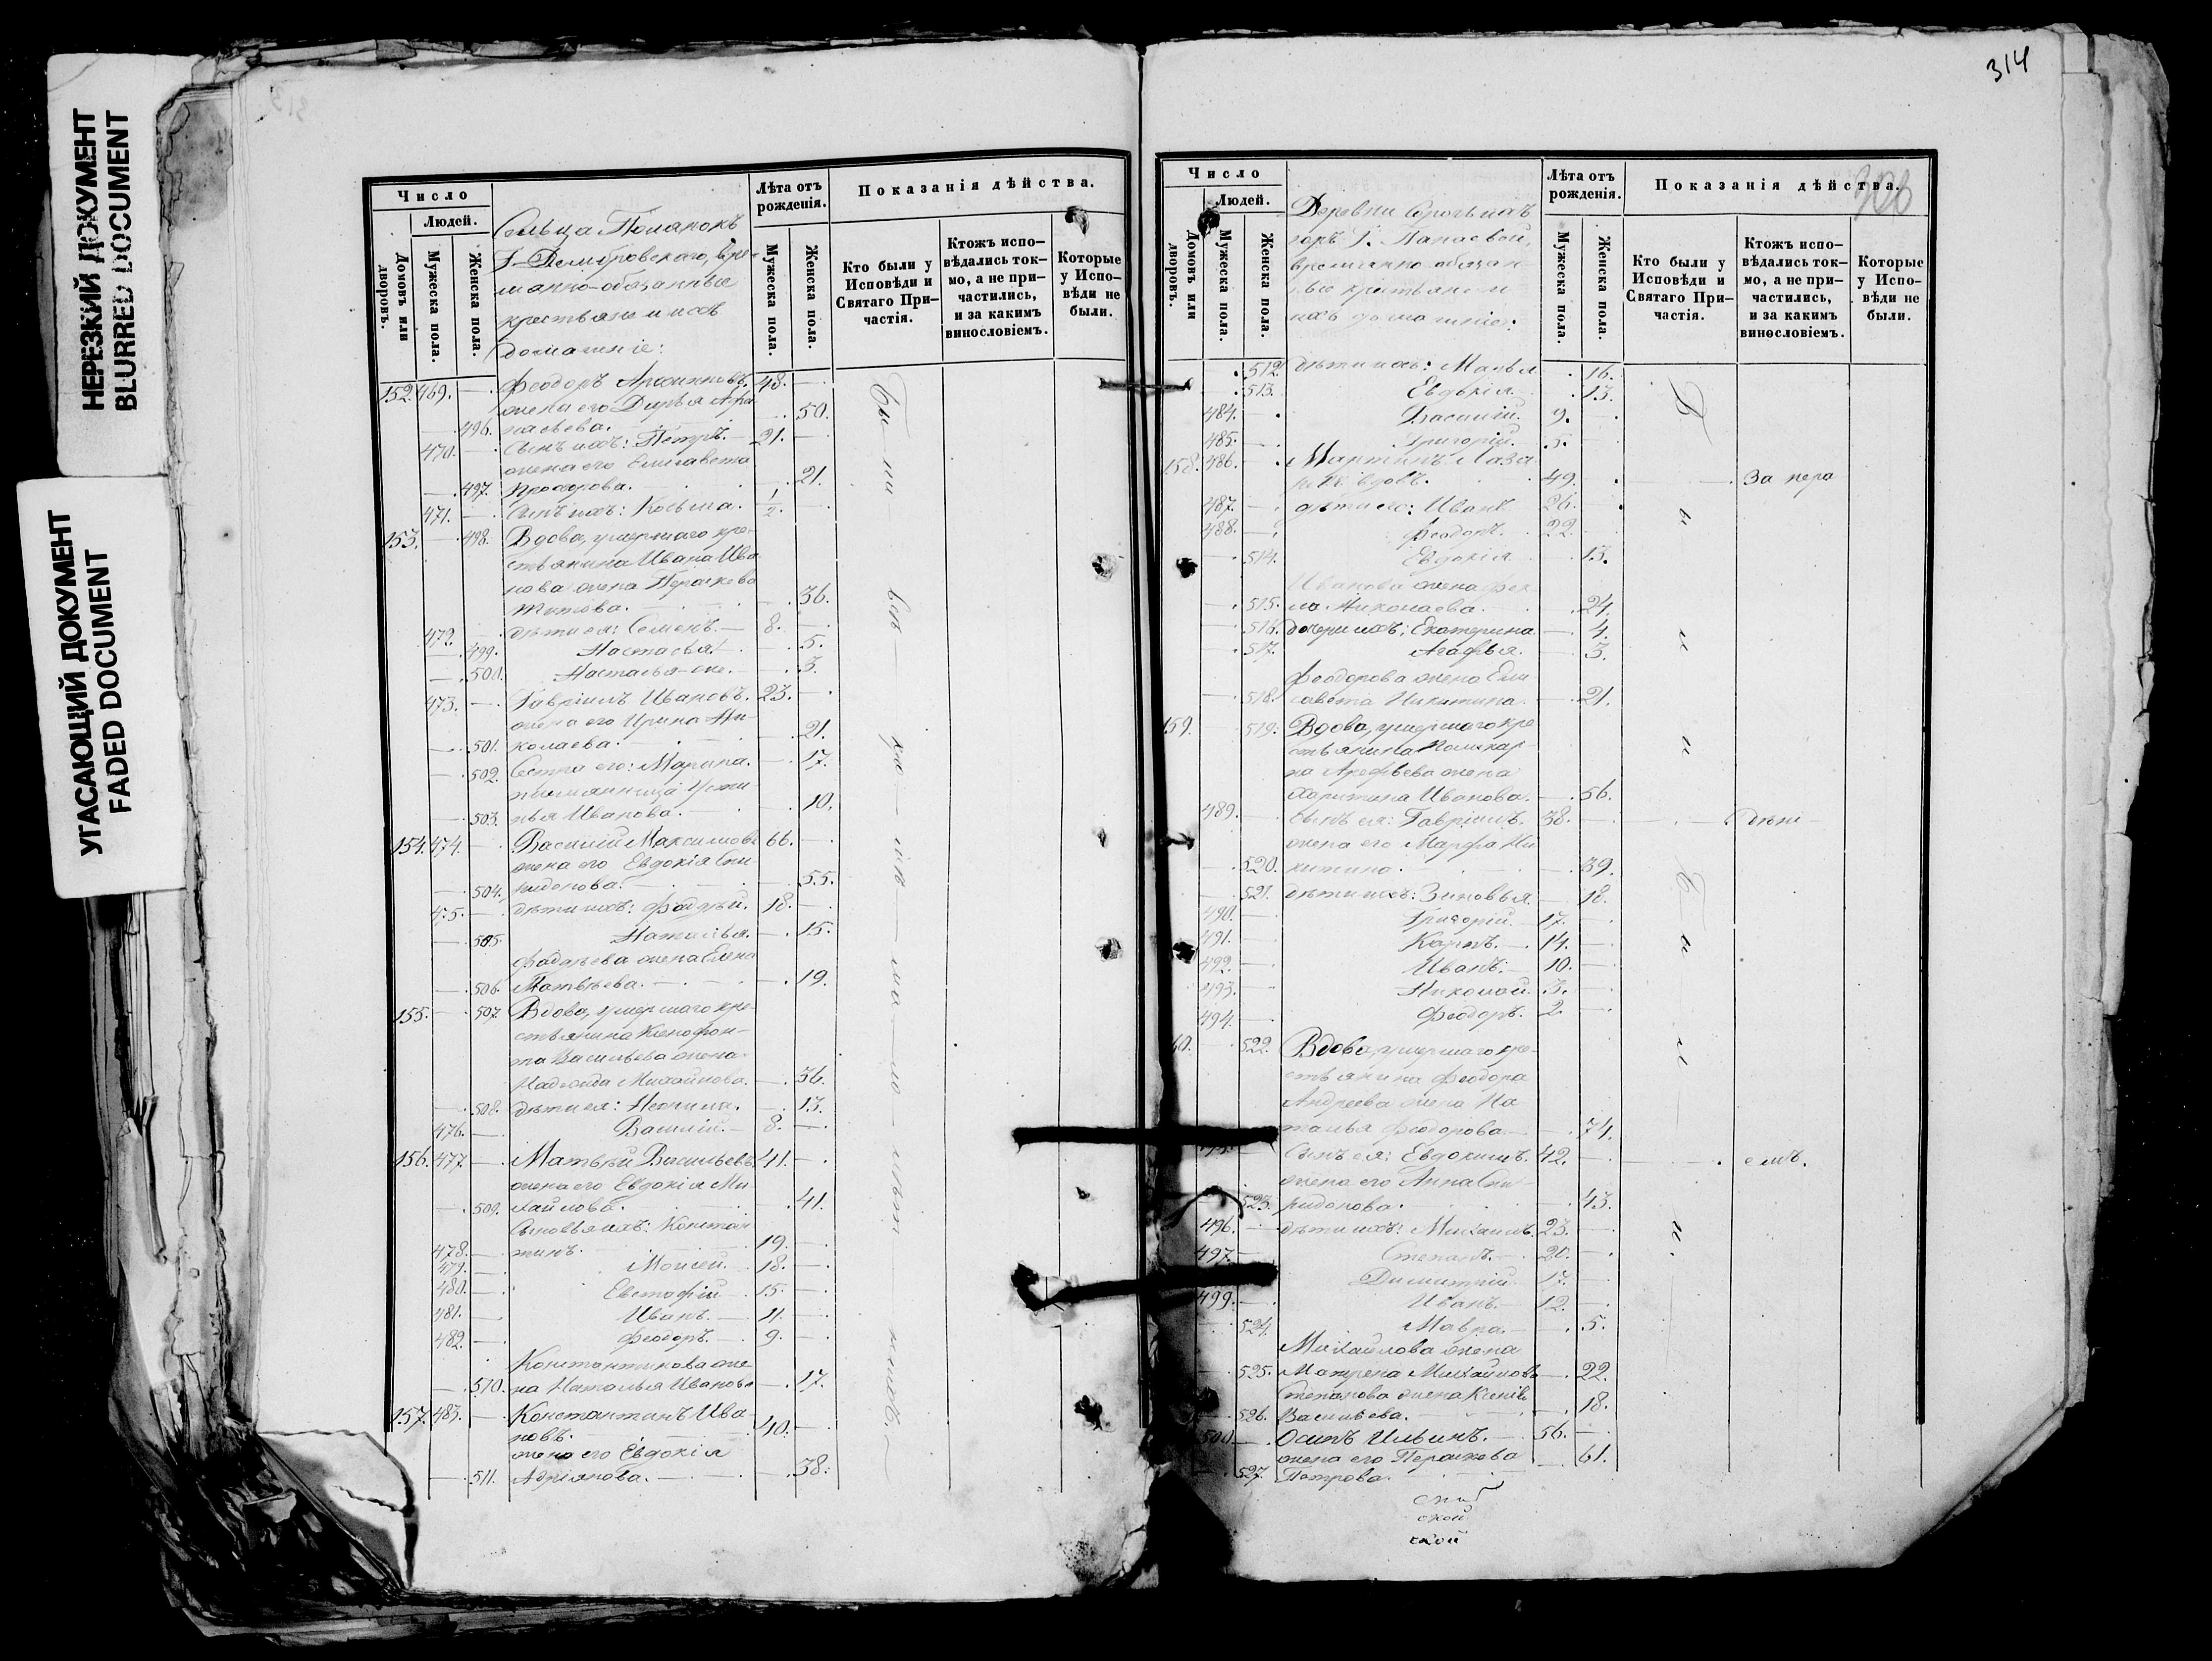 НЕРЕЗКИЙ ДОКУМЕНТ
BLURRED DOCUMENT
УГАСАЮЩИЙ ДОКУМЕНТ
FADED DOCUMENT
Число
Людей.
Домовъ или дворовъ.
Мужеска пола.
Женска пола.
Сельца Полянокъ
Г. Домбровскаго, вре-
менно-обязанные
крестьяне и ихъ
домашніе:
Лѣта отъ рожденія.
Мужеска пола.
Женска пола.
Показанія дѣйства.
Кто были у Исповѣди и Святаго При-частія.
Ктожъ испо-вѣдались ток-мо, а не при-частились, и за какимъ винословіемъ.
Которые у Испо-вѣди не были.
152. 469. — Феодоръ 48. —
жена его Дарья Афа-
— 496. насьева. — 50.
470. — Сынъ ихъ: Петръ. — 21. —
жена его Елисавета
— 497. Прохорова. — 21.
471. — Сынъ ихъ: Косьма. 1/2. —
153. — 498. Вдова, умершаго кре-
стьянина Ивана Ива-
нова жена Параскева
Титова. — 36.
472. — дѣти ея: Семенъ. — 8. —
— 499. Настасья. — 5.
— 500. Настасья-же. — 3.
473. — Гавріилъ Ивановъ. 23. —
жена его Ирина Ни-
— 501. колаева. — 21.
— 502. Сестра его: Марина. — 17.
племянница Усти-
— 503. нья Иванова. — 10.
154. 474. — Василій Максимовъ 66. —
жена его Евдокія Спи-
— 504. ридонова. — 55.
475. — дѣти ихъ: Фаддѣй. 18. —
— 505. Наталья. — 15.
Фаддѣева жена Елена
— 506. Матвѣева. — 19.
155. — 507. Вдова, умершаго кре-
стьянина Ксенофон-
та Васильева жена
Надежда Михайлова. — 36.
— 508. дѣти ея: Неонила. — 13.
476. — Василій. — 8. —
156. 477. — Матвѣй Васильевъ 41. —
жена его Евдокія Ми-
— 509. хайлова. — 41.
Сыновья ихъ: Констан-
478. — тинъ. — 19. —
479. — Моисей. 18. —
480. — Евстафій 15. —
481. — Иванъ. — 11. —
482. — Феодоръ. — 9. —
Константинова же-
— 510. на Наталья Иванова — 17.
157. 483. — Константинъ Ива-
новъ. — 40. —
жена его Евдокія
— 511. Адріянова. — 38.
314
Число
Людей.
Домовъ или дворовъ.
Мужеска пола.
Женска пола.
Деревни
горъ Г. Панаевой,
временно-обязан-
ные крестьяне и
ихъ домашніе:
Лѣта отъ рожденія.
Мужеска пола.
Женска пола.
Показанія дѣйства.
Кто были у Исповѣди и Святаго При-частія.
Ктожъ испо-вѣдались ток-мо, а не при-частились, и за какимъ винословіемъ.
Которые у Испо-вѣди не были.
512. дѣти ихъ: Марья 16.
513. Евдокія 13.
484. Василій. 9.
485. — Григорій. 5. —
158. 486. — Мартинъ Лаза-
ревъ вдовъ. 49. За нера
487. — дѣти его: Иванъ 26.
488. — Феодоръ. 22.
— 514. Евдокія — 13.
Иванова жена Фек-
— 515. ла Николаева. — 24.
— 516. дочери ихъ: Екатерина — 4.
— 517. Агафья. — 3.
Феодорова жена Ели-
— 518. савета Никитина — 21.
159. — 519. Вдова, умершаго кре-
стьянина Поликар-
па Арефьева жена
Харитина Иванова. — 56.
489. — Сынъ ея: Гавріилъ. 38. — дѣні-
жена его Марфа Ни-
— 520. китина. — 39.
— 521. дѣти ихъ: Зиновья. — 18.
490. — Григорій. 17. —
491. — Карпъ. 14. —
492. — Иванъ. 10. —
493. — Николай. 3. —
494. — Феодоръ. 2. —
60. — 522. Вдова, умершаго кре-
стьянина Феодора
Андреева жена На-
талья Феодорова. — 74.
Сынъ ея: Евдокимъ. 42. — емъ.
жена его Анна Спи-
523. ридонова. — 43.
496. — дѣти ихъ: Михаилъ. 23. —
497. — Степанъ. 20. —
Димитрій 17. —
499. — Иванъ. 12. —
— 524. Мавра. — 5.
Михайлова жена
— 525. Матрена Михайлова — 22.
Степанова жена
— 526. Васильева. — 18.
500. — Осипъ Ильинъ. 56. —
жена его Параскева
— 527. Петрова. — 61.